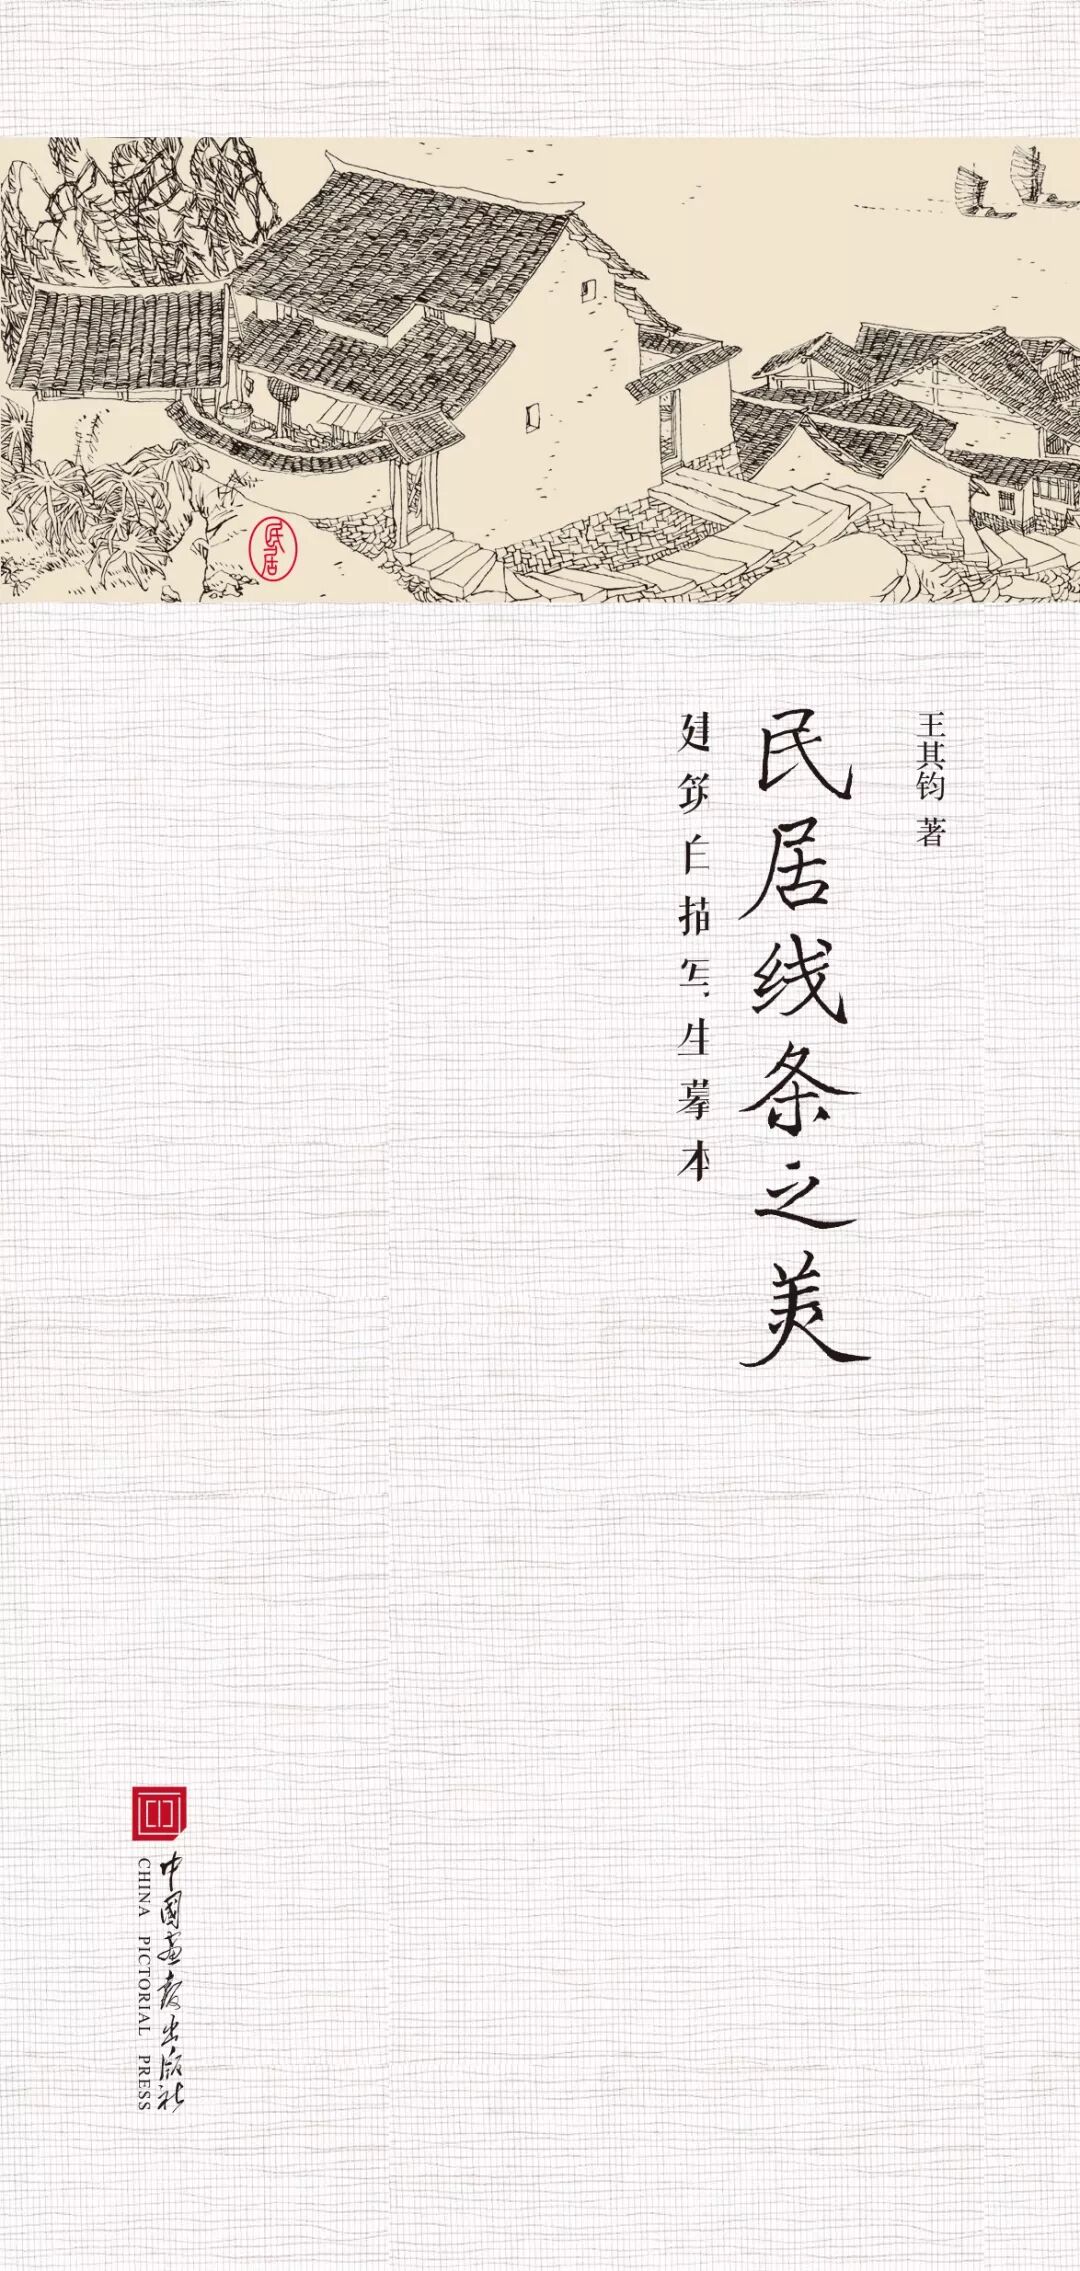 民居
王其钧 著
民居线条之美
建筑白描写生摹本
中国画报出版社
CHINA PICTORIAL PRESS